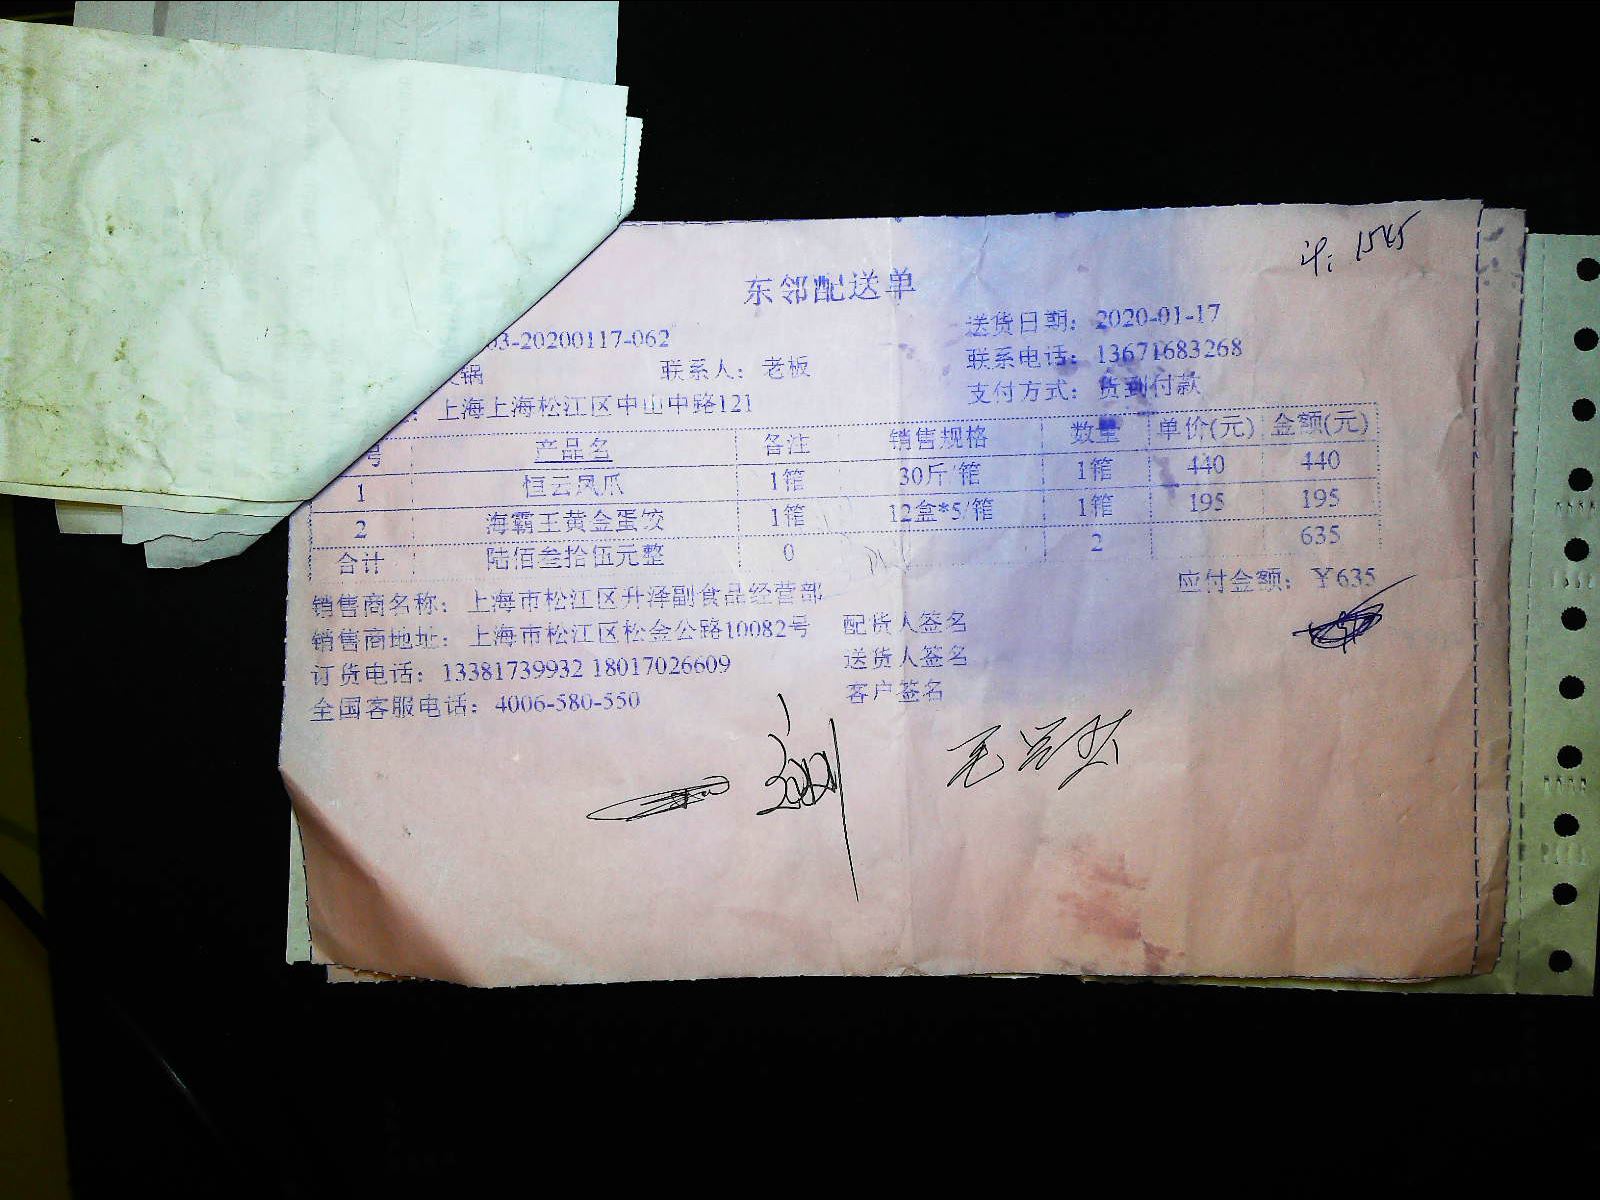 计: 1545
东邻配送单
03-20200117-062 送货日期: 2020-01-17
火锅 联系人: 老板 联系电话: 13671683268
: 上海上海松江区中山中路121 支付方式: 货到付款
号 产品名 备注 销售规格 数量 单价(元) 金额(元)
1 恒云凤爪 1箱 30斤/箱 1箱 440 440
2 海霸王黄金蛋饺 1箱 12盒*5/箱 1箱 195 195
合计 陆佰叁拾伍元整 0 2 635
应付金额: ¥635
销售商名称: 上海市松江区升泽副食品经营部
销售商地址: 上海市松江区松金公路10082号 配货人签名
订货电话: 13381739932 18017026609 送货人签名
全国客服电话: 4006-580-550 客户签名